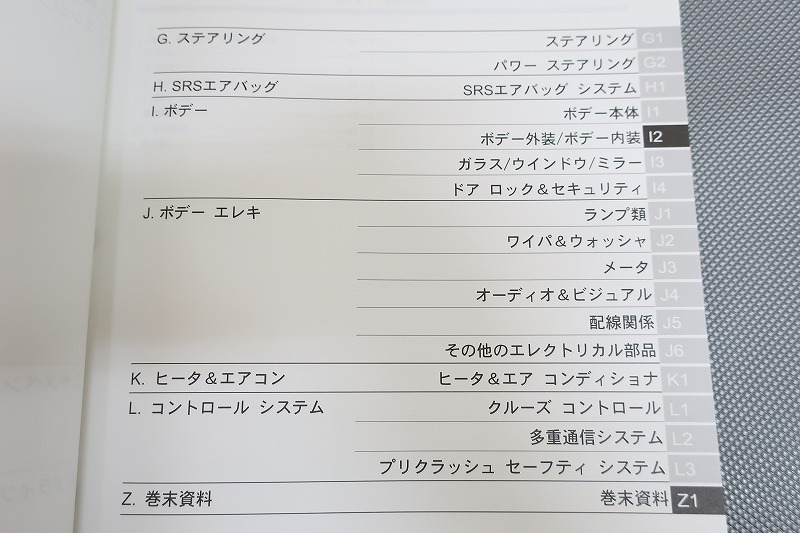 G. ステアリング ステアリング G1
パワー ステアリング G2
H. SRSエアバッグ SRSエアバッグ システム H1
I. ボデー ボデー本体 I1
ボデー外装/ボデー内装 I2
ガラス/ウインドウ/ミラー I3
ドア ロック＆セキュリティ I4
J. ボデー エレキ ランプ類 J1
ワイパ＆ウォッシャ J2
メータ J3
オーディオ＆ビジュアル J4
配線関係 J5
その他のエレクトリカル部品 J6
K. ヒータ＆エアコン ヒータ＆エア コンディショナ K1
L. コントロール システム クルーズ コントロール L1
多重通信システム L2
プリクラッシュ セーフティ システム L3
Z. 巻末資料 巻末資料 Z1